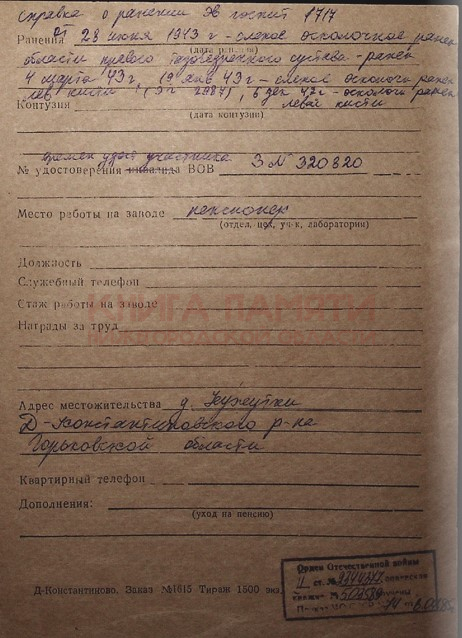 справка о ранении Эв госпит 1717
Ранения от 28 июня 1943 г - слепое осколочное ранен
(дата ранения)
области правого тазобедренного сустава - ранен
4 марта 43 г, 19 янв 43 г - слепое осколоч ранен
лев кисти (Эг 2987), 6 дек 42 г - осколоч ранен
левой кисти
Контузия
(дата контузии)
времен удост участника
№ удостоверения инвалида ВОВ З № 320820
Место работы на заводе пенсионер
(отдел, цех, уч-к, лаборатории)
Должность
Служебный телефон
Стаж работы на заводе
КНИГА ПАМЯТИ
Награды за труд
НИЖЕГОРОДСКОЙ ОБЛАСТИ
Адрес местожительства д. Кужутки
Д-Константиновского р-на
Горьковской области
Квартирный телефон
Дополнения:
(уход на пенсию)
Орден Отечественной войны
II ст. №
Д-Константиново. Заказ №1615 Тираж 1500 экз.